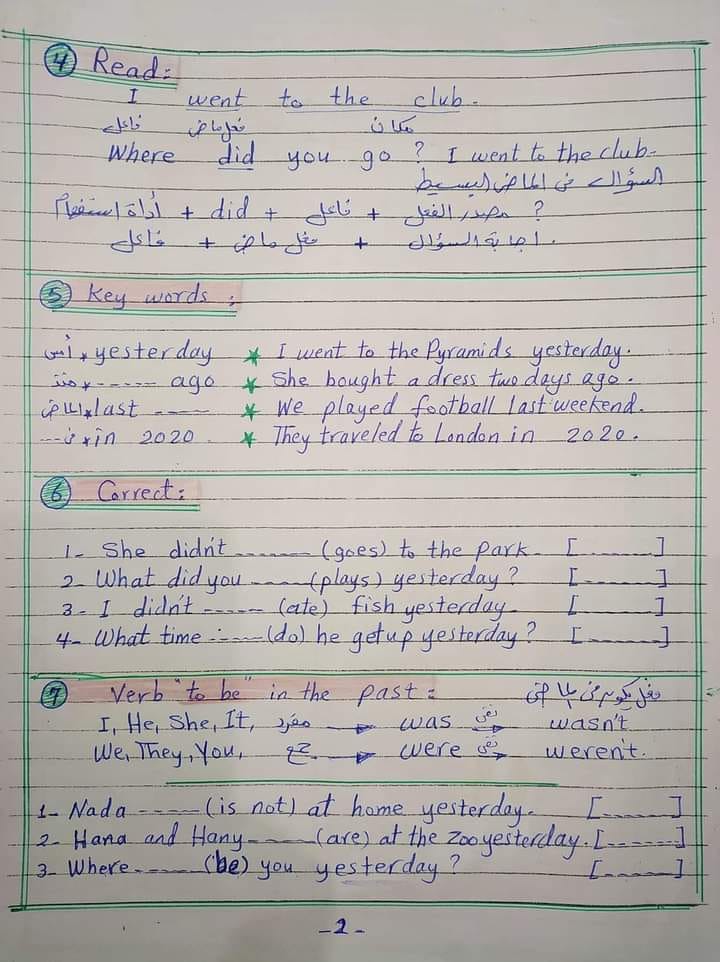 4 Read:
I went to the club.
فاعل فعل ماض مكان
Where did you go ? I went to the club.
السؤال في الماضي البسيط
أداة استفهام + did + فاعل + مصدر الفعل ?
فاعل + فعل ماض + اجابة السؤال .
5 Key words :
أمس * yesterday ★ I went to the Pyramids yesterday.
منذ * ------ ago ★ She bought a dress two days ago.
الماضي * last ---- ★ We played football last weekend.
في --- * in 2020 . ★ They traveled to London in 2020.
6 Correct :
1- She didn't ------ (goes) to the park. [------]
2- What did you ----- (plays) yesterday ? [------]
3- I didn't ----- (ate) fish yesterday. [------]
4- What time ----- (do) he get up yesterday ? [------]
7 Verb "to be" in the past : فعل يكون في الماضي
I, He, She, It, مفرد → was نفي → wasn't
We, They, You, جمع → were نفي → weren't.
1- Nada ----- (is not) at home yesterday. [-----]
2- Hana and Hany ----- (are) at the zoo yesterday. [------]
3- Where ----- (be) you yesterday ? [-----]
-2-